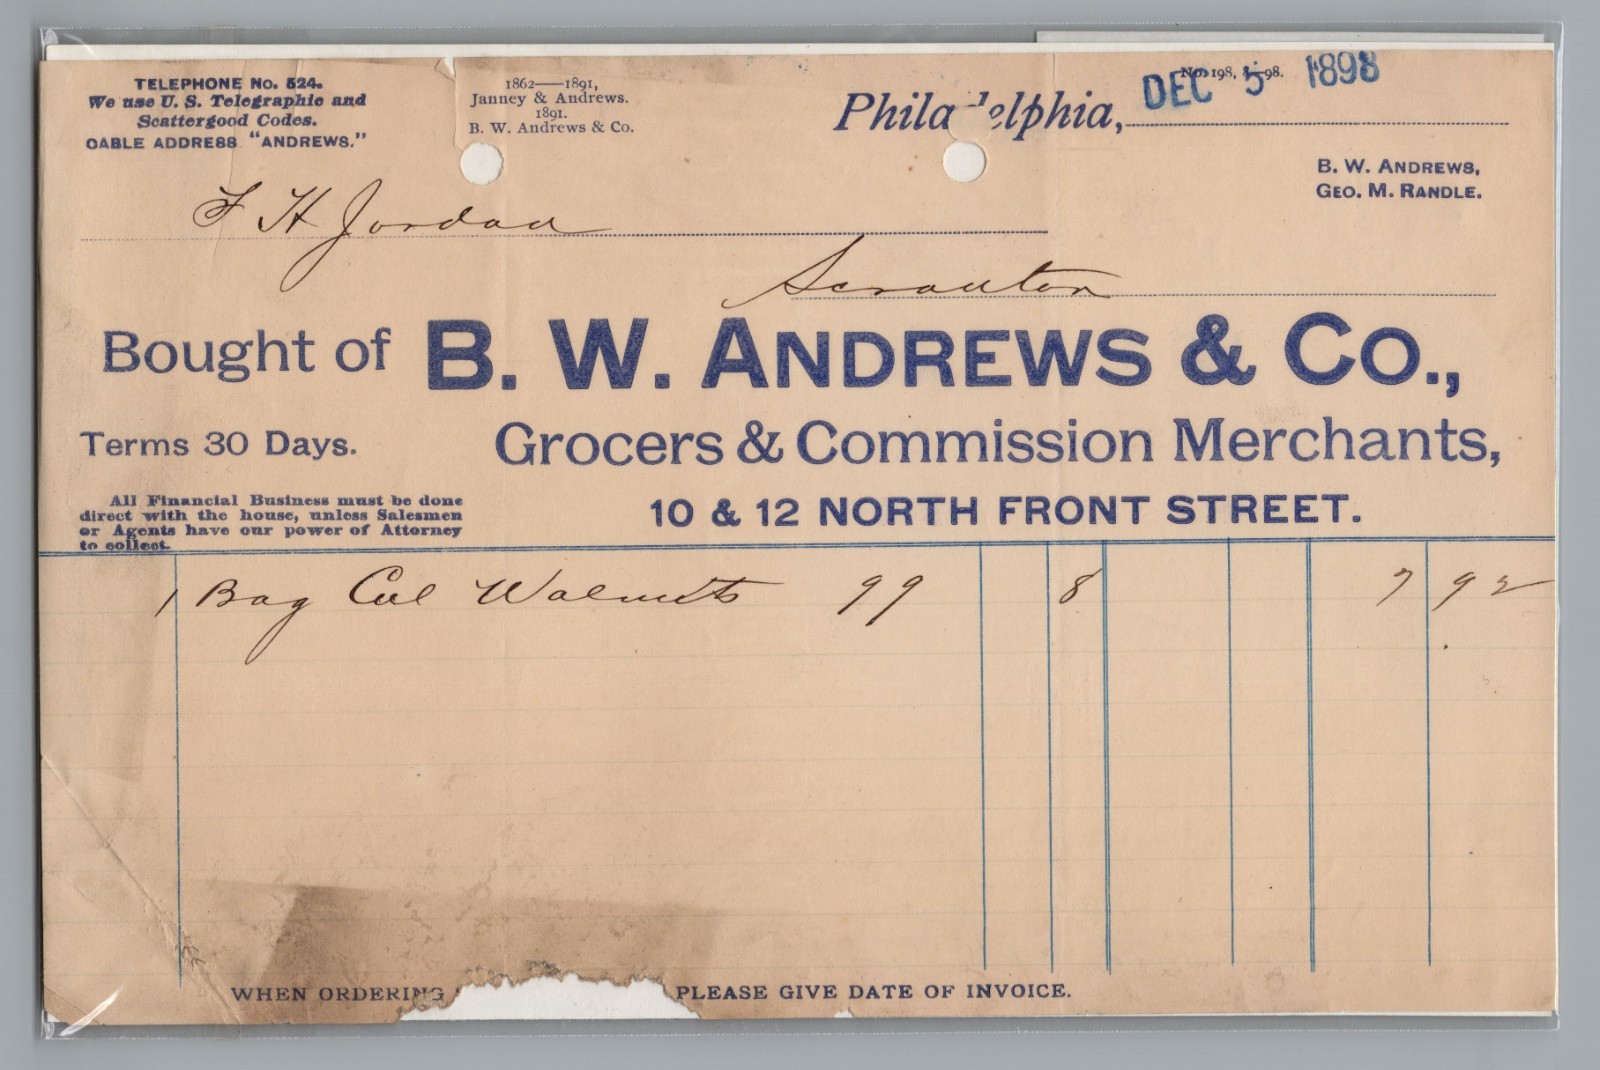 TELEPHONE No. 524.
We use U. S. Telegraphic and
Scattergood Codes.
CABLE ADDRESS "ANDREWS."
1862—1891,
Janney & Andrews.
1891.
B. W. Andrews & Co.
No. 198, 8-98.
Philadelphia, DEC 5 1898
B. W. ANDREWS,
GEO. M. RANDLE.
F H Jordan
Scranton
Bought of B. W. ANDREWS & CO.,
Terms 30 Days.
Grocers & Commission Merchants,
10 & 12 NORTH FRONT STREET.
All Financial Business must be done
direct with the house, unless Salesmen
or Agents have our power of Attorney
to collect.
1 Bag Cal Walnuts 99 8 7 92
WHEN ORDERING PLEASE GIVE DATE OF INVOICE.